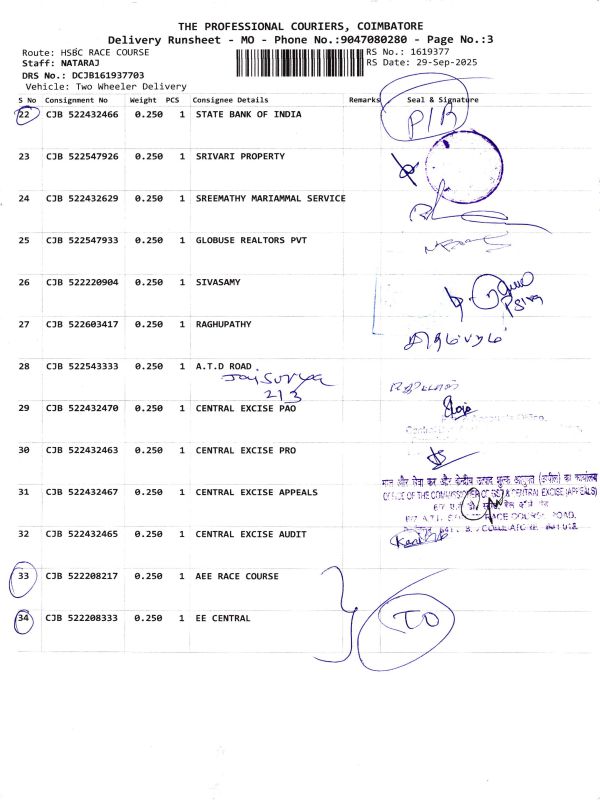 THE PROFESSIONAL COURIERS, COIMBATORE
Delivery Runsheet - MO - Phone No.:9047080280 - Page No.:3
Route: HSBC RACE COURSE RS No.: 1619377
Staff: NATARAJ RS Date: 29-Sep-2025
DRS No.: DCJB161937703
Vehicle: Two Wheeler Delivery
S No Consignment No Weight PCS Consignee Details Remarks Seal & Signature
22 CJB 522432466 0.250 1 STATE BANK OF INDIA P/B
23 CJB 522547926 0.250 1 SRIVARI PROPERTY
24 CJB 522432629 0.250 1 SREEMATHY MARIAMMAL SERVICE
25 CJB 522547933 0.250 1 GLOBUSE REALTORS PVT
26 CJB 522220904 0.250 1 SIVASAMY
27 CJB 522603417 0.250 1 RAGHUPATHY
28 CJB 522543333 0.250 1 A.T.D ROAD
Jaisurya
213
29 CJB 522432470 0.250 1 CENTRAL EXCISE PAO
30 CJB 522432463 0.250 1 CENTRAL EXCISE PRO
माल और सेवा कर और केंद्रीय उत्पाद शुल्क आयुक्त (अपील) का कार्यालय
31 CJB 522432467 0.250 1 CENTRAL EXCISE APPEALS OFFICE OF THE COMMISSIONER OF GST & CENTRAL EXCISE (APPEALS)
RACE COURSE ROAD,
COIMBATORE 641 018
32 CJB 522432465 0.250 1 CENTRAL EXCISE AUDIT
33 CJB 522208217 0.250 1 AEE RACE COURSE
34 CJB 522208333 0.250 1 EE CENTRAL TO